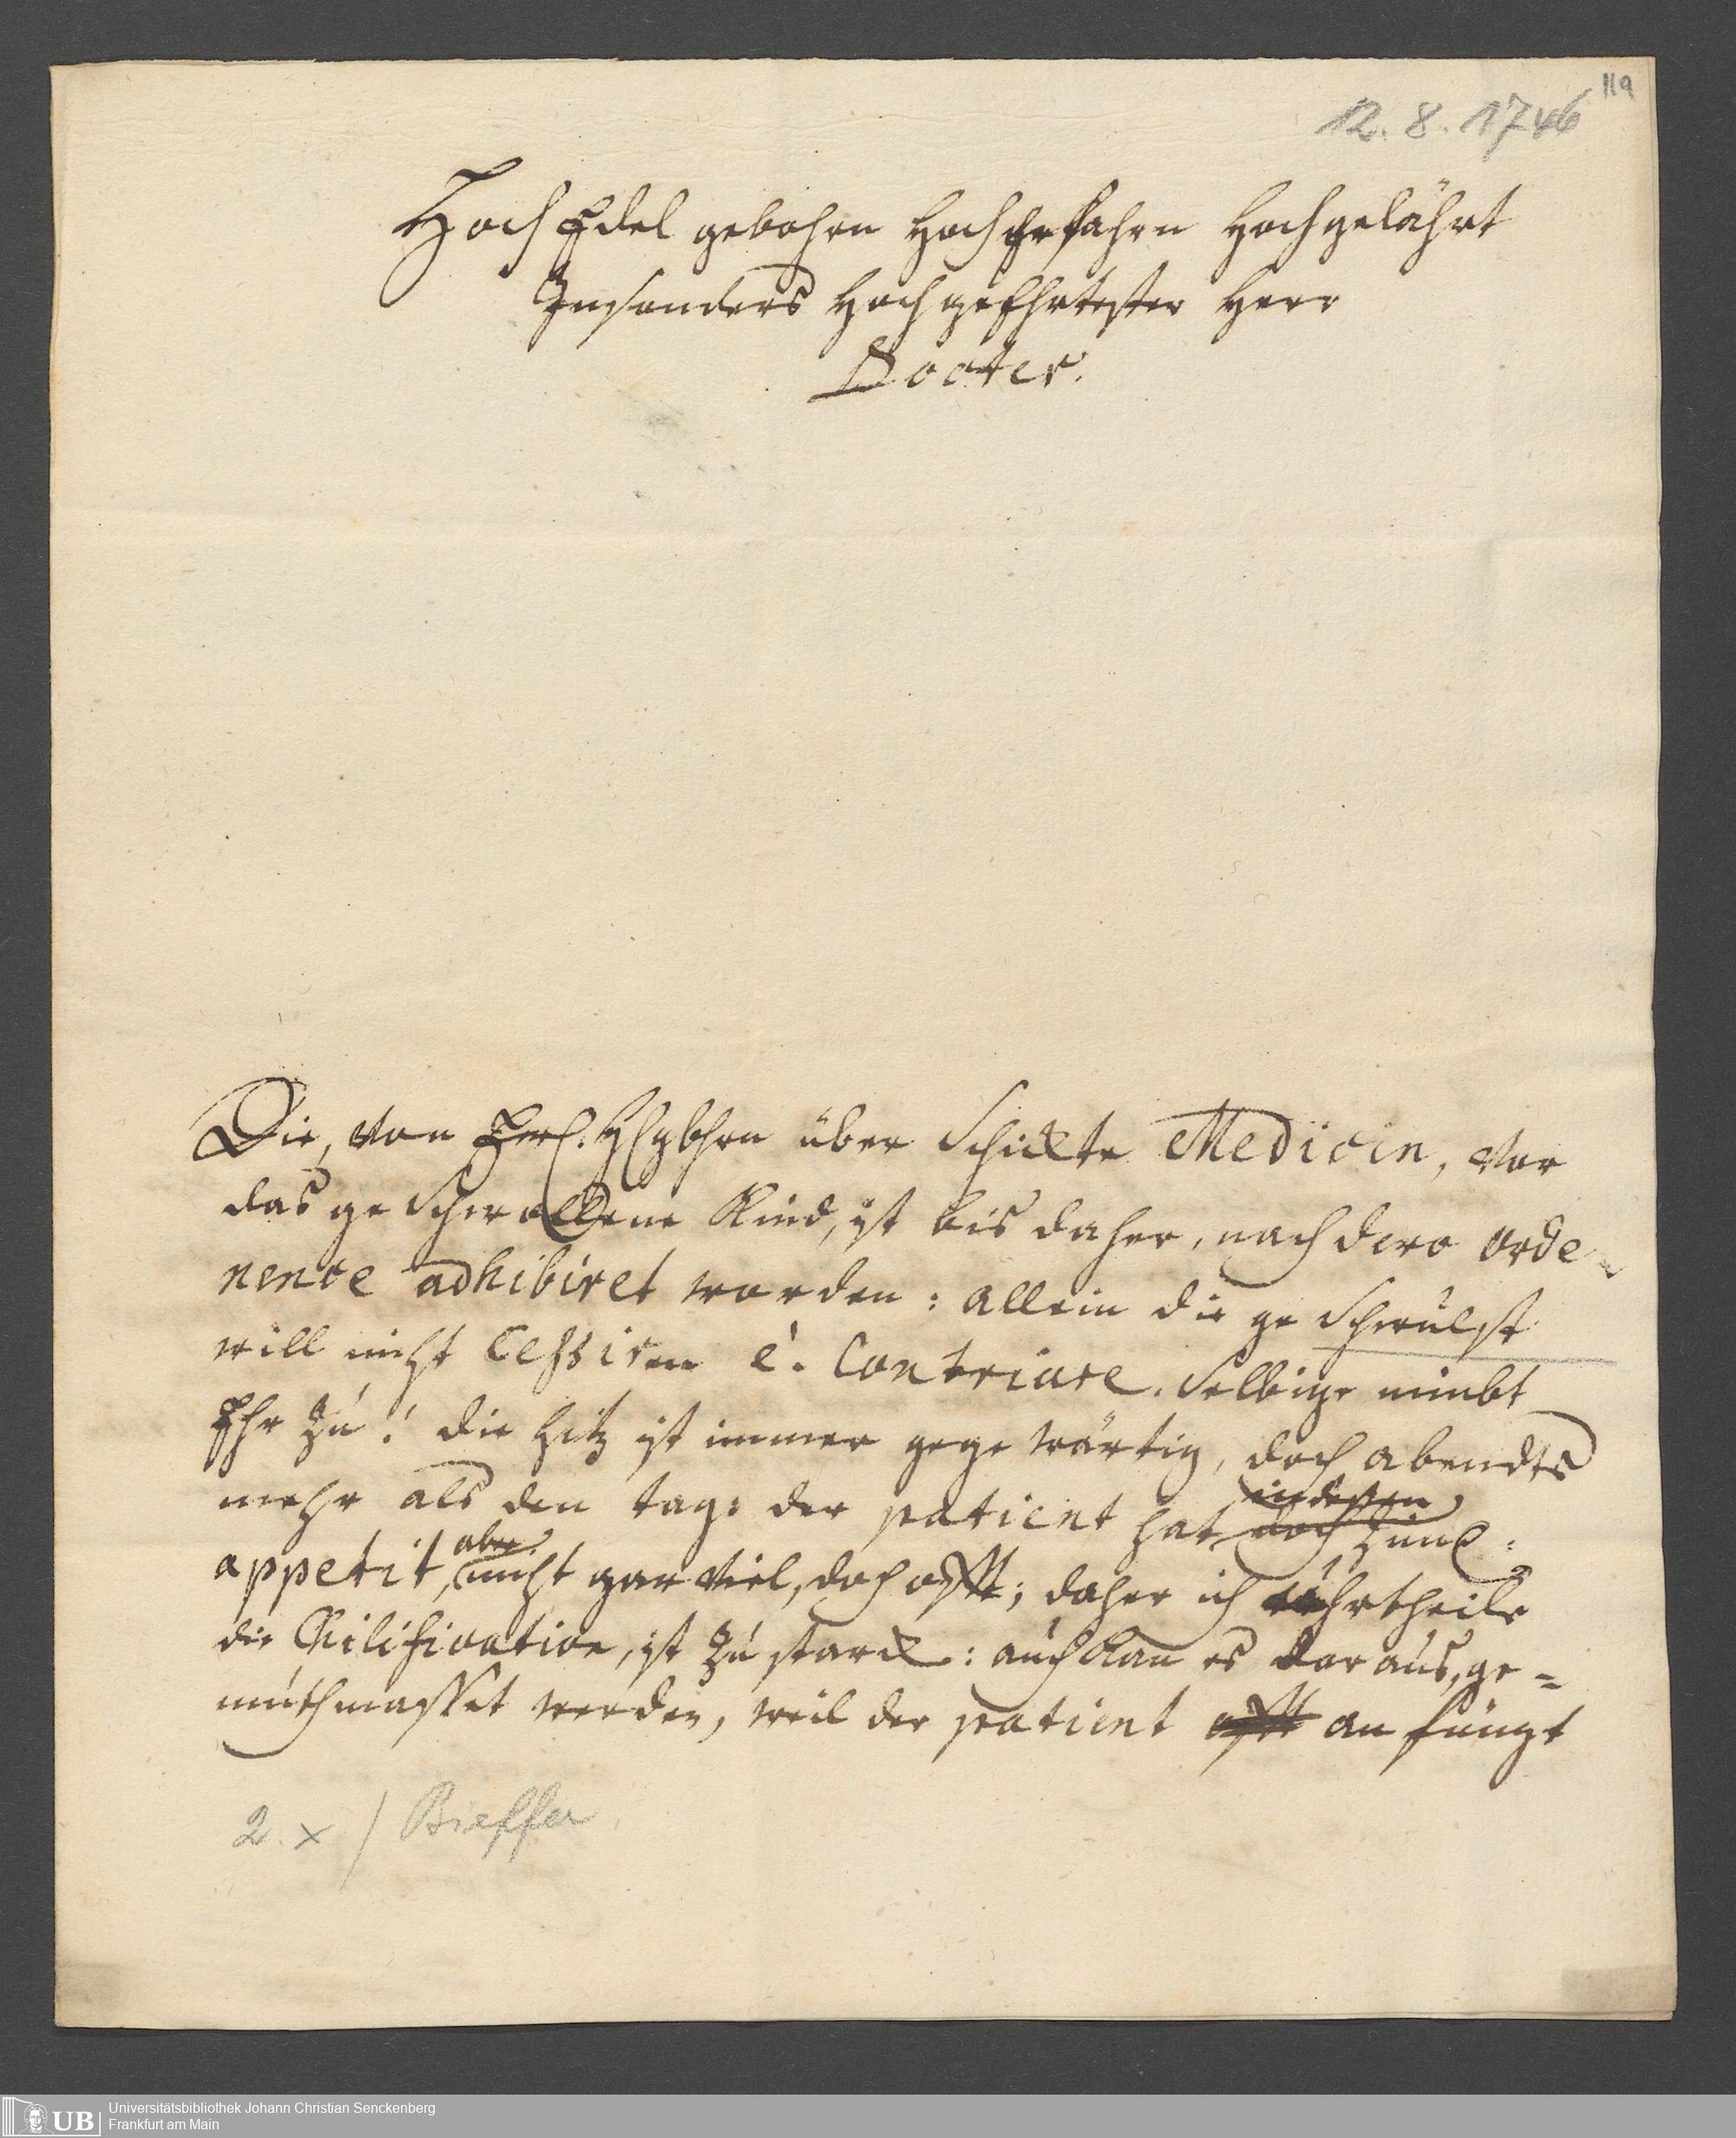 119
12. 8. 1746
Hoch Edel gebohrn Hoch Erfahrn Hochgelährt
Insonders Hoch geEhrtester Herr
Docter.
Die, von Hhgbhrn über Schickte Medicin, vor
das ge Schwollene Kind, ist bis daher, nach dero orde
nence adhibiret worden: allein die ge Schwulst
will nicht Cessiren è. Contriare. Selbige nimbt
Ehr zu! die Hitz ist immer gege wärtig, doch abendts
mehr als den tag: der patient hat indessen
doch zimI.
appetit, aber nicht gar viel, doch offt; daher ich uhrtheile
die Chilification, ist zu starck: auch kan es daraus, ge=
muthmasset werden, weil der patient offt an fängt
2. x / Bieffer
UB
Universitätsbibliothek Johann Christian Senckenberg
Frankfurt am Main